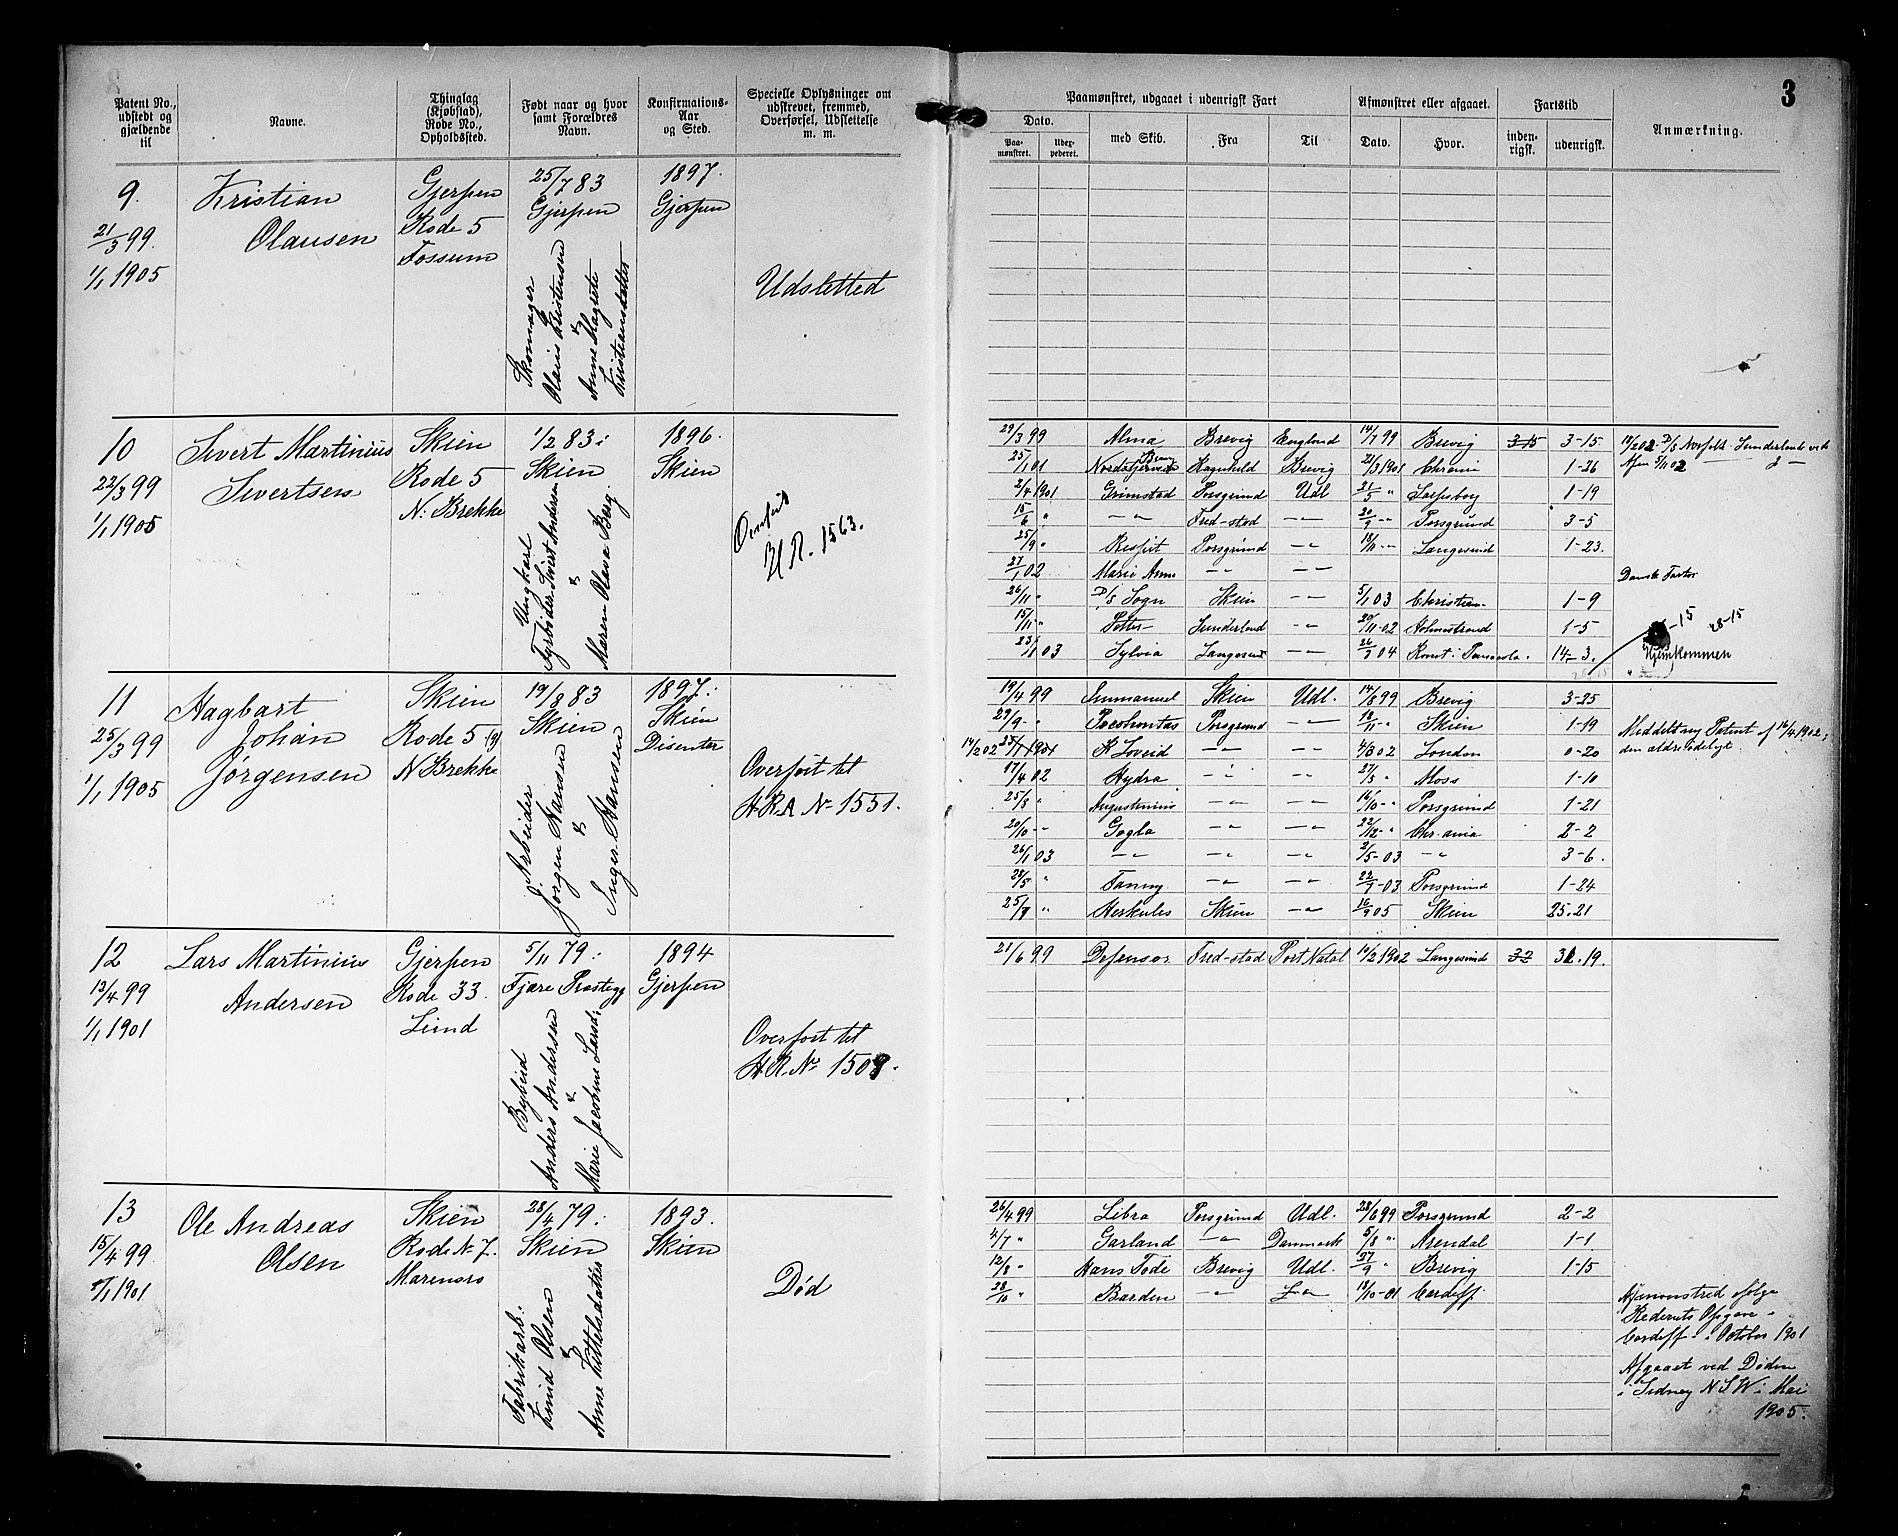 3
Patent No., udstedt og gjældende til
Navne.
Thinglag (Kjøbstad), Rode No., Opholdssted.
Født naar og hvor samt Forældres Navn.
Konfirmations-Aar og Sted.
Specielle Oplysninger om udskrevet, fremmed, Overførsel, Udslettelse m. m.
Paamønstret, udgaaet i udenrigsk Fart
Afmønstret eller afgaaet.
Fartstid
Anmærkning.
Dato.
Paa-mønstret.
Udex-pederet.
med Skib.
Fra
Til
Dato.
Hvor.
inden-rigsk.
udenrigsk.
9.
21/3 99.
1/1 1905
Kristian
Olausen
Gjerpen
Rode 5
Fossum
25/7 83
Gjerpen
Skomager
Olaus Kristensen
&
Anne Magrete
Kristiansdatter
1897.
Gjerpen
Udsletted
10
22/3 99
1/1 1905
Sivert Martinius
Sivertsen
Skien
Rode 5
N. Brekke
1/2 83:
Skien
Ungkarl
Fyrbøder Sivert Andersen
&
Maren Olava Berg.
1896.
Skien
H R. 1563.
29/3 99 Alma Brevig England 14/7 99 Brevig 3-15 3-15.
25/1 01 Ragnhild Brevig 21/3 1901 Chrania 1-26
2/4 1901 Grimstad Porsgrund Udl 21/5 " Sarpsborg 1-19
15/6 " -"- Fred-stad -"- 20/9 -"- Porsgrund 3-5
25/9 " Respit Porsgrund -"- 18/11 -"- Langesund 1-23.
27/1 02 Marie Anne -"- -"-
26/11 " D/S Sogn Skien -"- 5/1 03 Christian. 1-9
15/11 " Sunderland -"- 20/11-02 Holmestrand 1-5
23/1 03 Sylvia Langesund -"- 26/3 04 14-3.
28-15
Hjemkommen
11
25/3 99
1/1 1905
Hagbart
Johan
Jørgensen
Skien
Rode 5
N Brekke
19/9 83
Skien
J. Arbeider
Jørgen Hansen
&
Inger Hansen
1897:
Skien
Disenter
Overført til
H.R.A No 1551.
19/4 99 Emmanuel Skien Udl. 14/8 99 Brevig 3-25
29/9 -" Pocohontas Porsgrund -"- 18/11 " Skien 1-19
14/2 02 K Loveid -"- -"- 4/3 02 London 0-20
17/4 02 Hydra -"- -"- 27/5 " Moss 1-10
25/8 " Augustinius -"- -"- 16/10 -" Porsgrund 1-21
20/10 -" Gogla -"- -"- 22/12 -" Chr.ania 2-2
26/1 03 -"- -"- -"- 2/5-03 -"- 3-6.
28/5 " Fanny -"- -"- 22/7-03 Porsgrund 1-24
25/8 " Herkules Skien -"- 16/9 05 Skien 25.21
Meddelt ny Patent af 16/4 1902,
den aldre ødelagt.
12
13/4 99
1/1 1901
Lars Martinius
Andersen
Gjerpen
Rode 33.
Lund
5/11 79:
Fjære Prestegj
Anders Andersen
&
Marie Jacobine Larsd.
1894
Gjerpen
Overført til
H.R. No 1508.
21/6 99 Defensor Fred-stad Port Natal 10/2 1902 Langesund 3-2 31.19.
13
15/4 99.
1/1 1901
Ole Andreas
Olsen
Skien
Rode No 7.
Marensro
28/4 79:
Skien
Fabrikarb.
Knud Olsen
&
Anne Kittelsdatter
1893.
Skien
Død
26/4 99 Libra Porsgrund Udl. 28/6 99 Porsgrund 2-2
4/7 " Garland -"- Danmark 5/8 " Arendal 1-1
12/8 " Hans Tode Brevig Udl. 27/9 " Brevig 1-15
28/10 " Barden -"- 18/10-01 Cardiff
Afmønstred ifølge
Rederiets Opgave i
Cardiff - i October 1901
Afgaaet ved Døden
i Sidney N S W i Mai
1905.